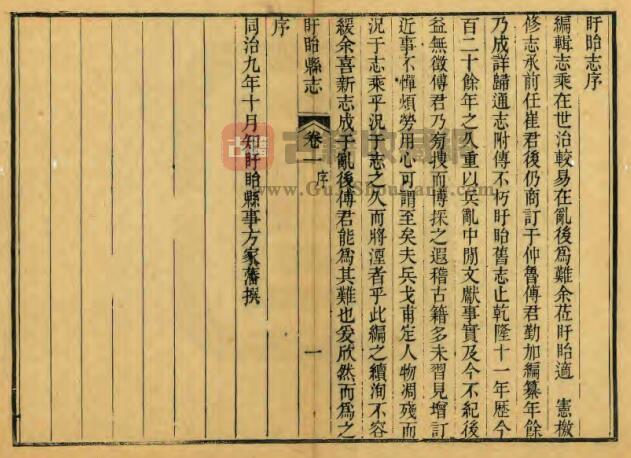 盱眙志序
編輯志乘在世治較易在亂後爲難余莅盱眙適 憲檄
修志承前任崔君後仍商訂于仲魯傅君勤加編纂年餘
乃成詳歸通志附傳不朽盱眙舊志止乾隆十一年歷今
百二十餘年之久重以兵亂中閒文獻事實及今不紀後
益無徵傅君乃窮搜而博探之遐稽古籍多未習見增訂
近事不憚煩勞用心可謂至矣夫兵戈甫定人物凋殘而
況于志乘乎況于志之久而將湮者乎此編之續洵不容
緩余喜新志成于亂後傅君能爲其難也爰欣然而爲之
盱眙縣志 卷一 序 一
序
同治九年十月知盱眙縣事方家藩撰
古籍收藏網
www.GuJiShouCang.com